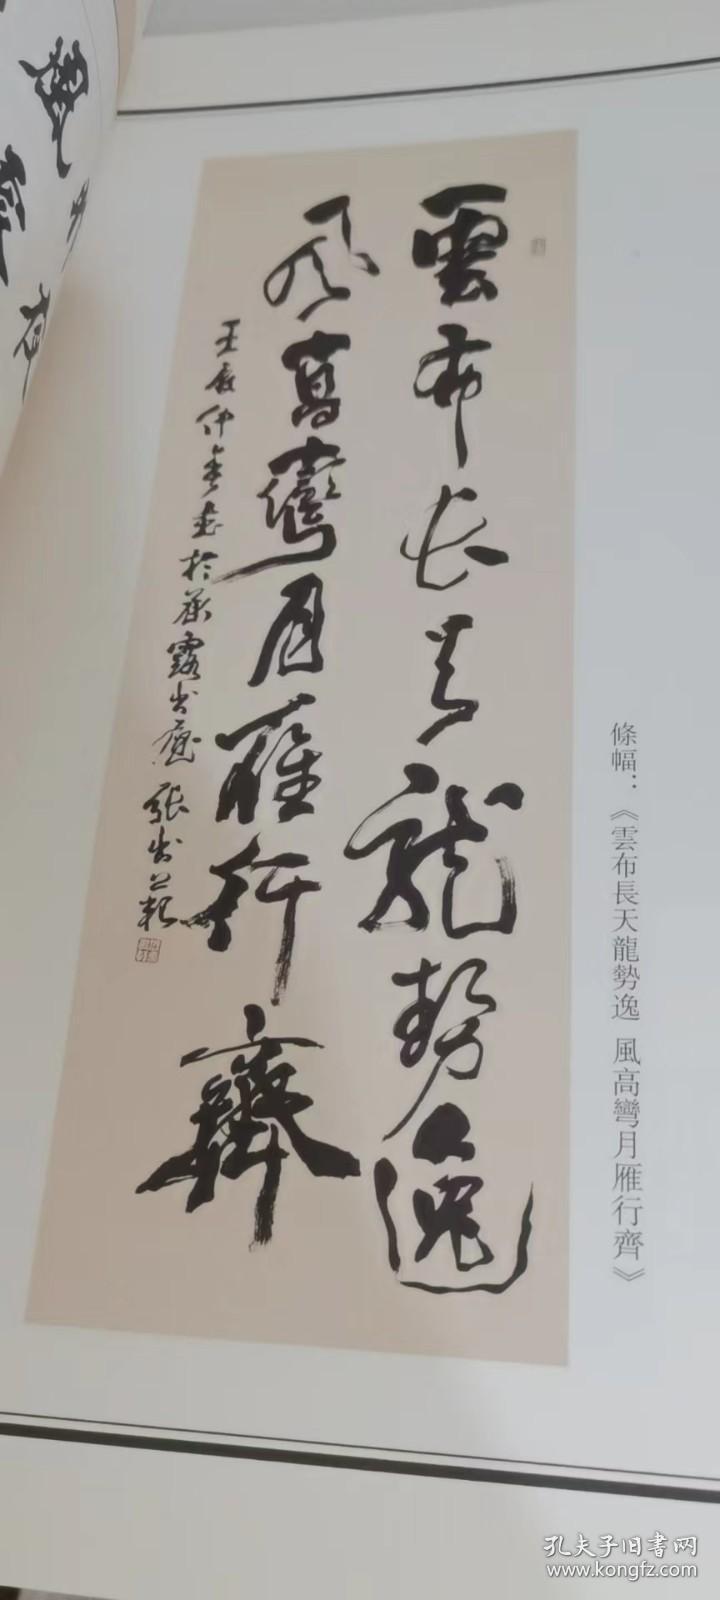 雲布长天龍勢逸
風高彎月雁行齊
壬辰仲冬書於承露书庵 张书范
條幅：《雲布長天龍勢逸 風高彎月雁行齊》
孔夫子旧书网
www.kongfz.com